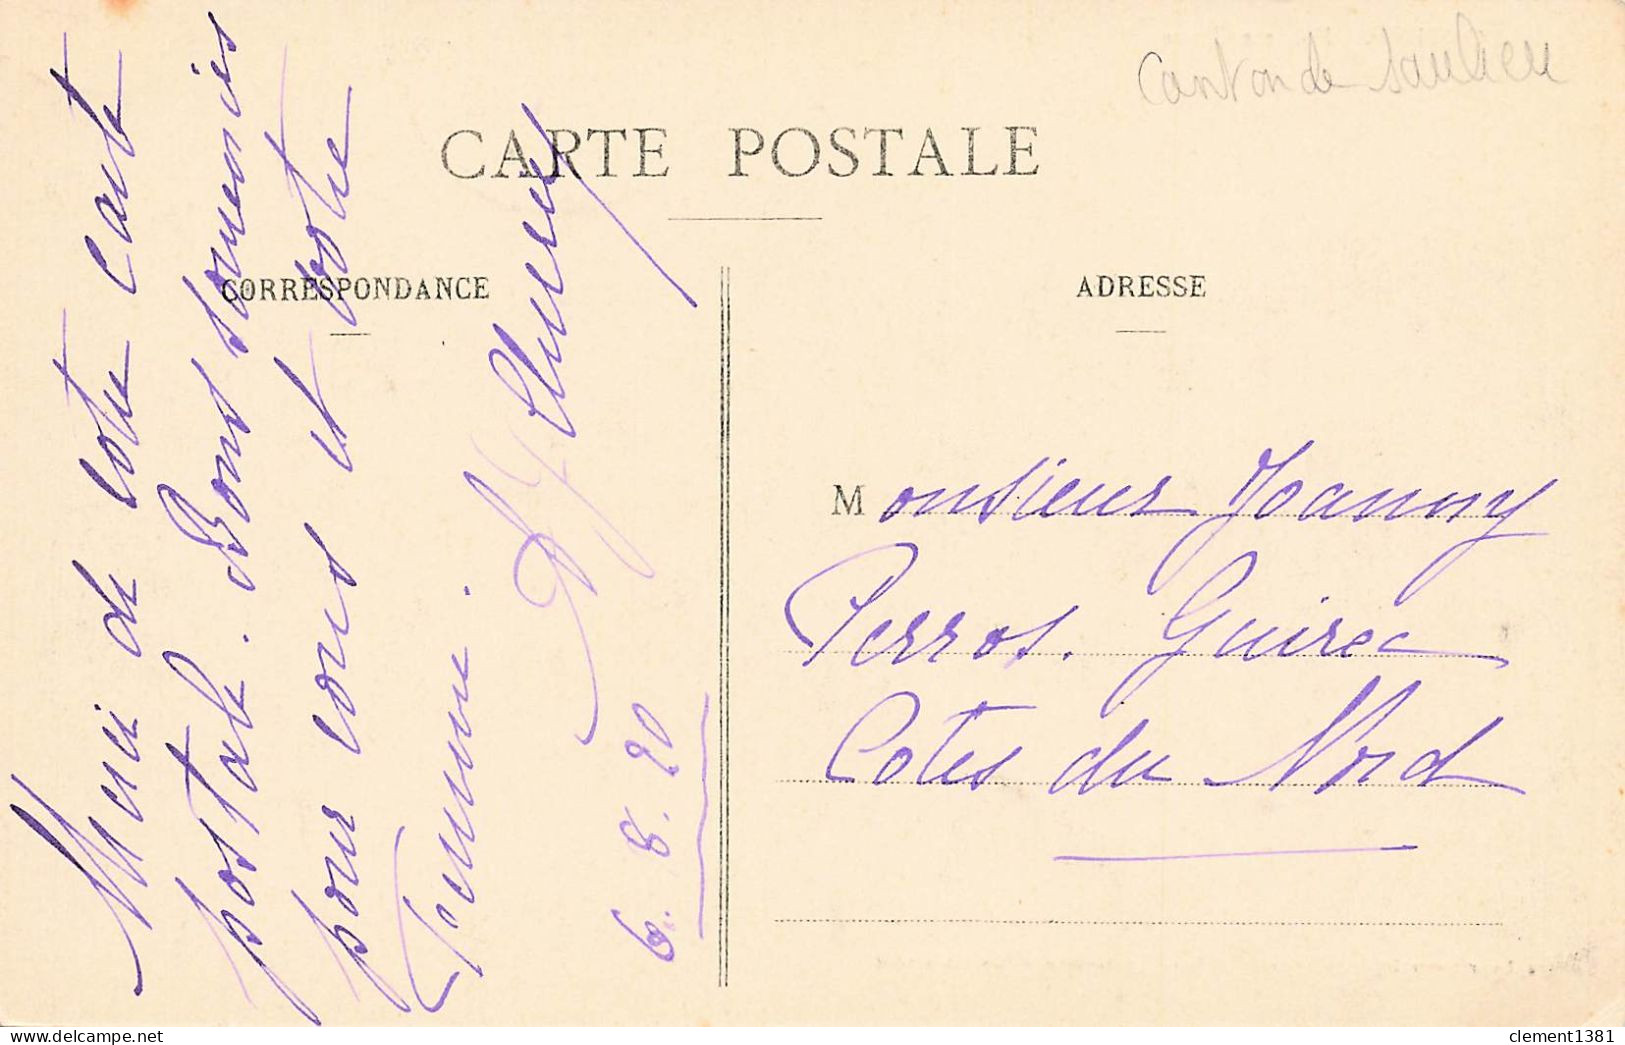 Canton de Saulieu
CARTE POSTALE
CORRESPONDANCE
Merci de votre carte
postale. Bons souvenirs
pour vous et votre
femme.
6.8.20
ADRESSE
Monsieur Joanny
Perros. Guirec
Cotes du Nord
clement1381